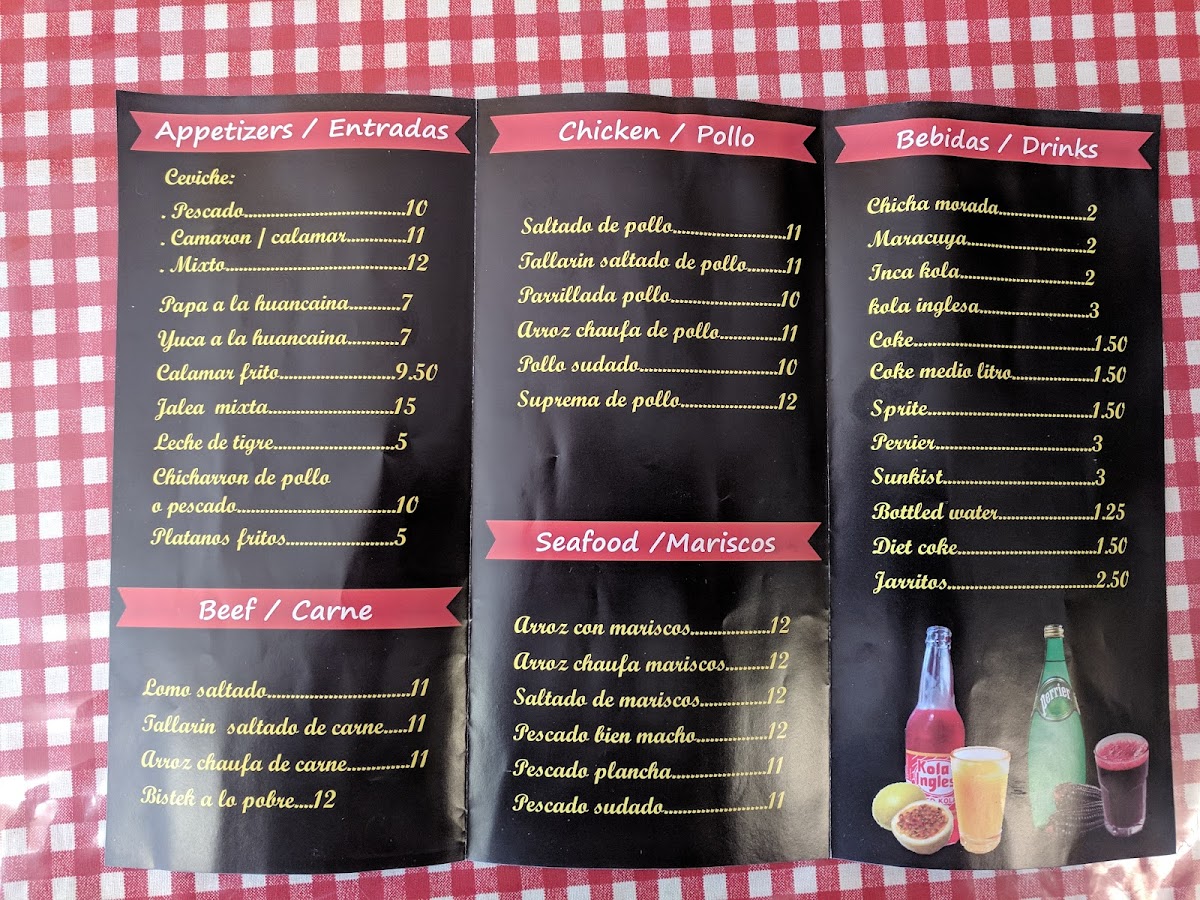 Appetizers / Entradas
Ceviche:
. Pescado......................................10
. Camaron / calamar..............11
. Mixto..........................................12
Papa a la huancaina.............7
Yuca a la huancaina............7
Calamar frito...........................9.50
Jalea mixta.............................15
Leche de tigre............................5
Chicharron de pollo
o pescado.....................................10
Platanos fritos.........................5
Beef / Carne
Lomo saltado.................................11
Tallarin saltado de carne.....11
Arroz chaufa de carne..............11
Bistek a lo pobre....12
Chicken / Pollo
Saltado de pollo..........................11
Tallarin saltado de pollo.........11
Parrillada pollo.........................10
Arroz chaufa de pollo..............11
Pollo sudado................................10
Suprema de pollo......................12
Seafood /Mariscos
Arroz con mariscos..................12
Arroz chaufa mariscos..........12
Saltado de mariscos................12
Pescado bien macho................12
Pescado plancha......................11
Pescado sudado........................11
Bebidas / Drinks
Chicha morada....................2
Maracuya...........................2
Inca kola.............................2
kola inglesa.........................3
Coke.........................................1.50
Coke medio litro...................1.50
Sprite......................................1.50
Perrier....................................3
Sunkist...................................3
Bottled water......................1.25
Diet coke................................1.50
Jarritos..................................2.50
Perrier
Kola
Ingles